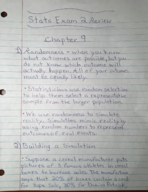 State Exam 2 Review
Chapter 9
1) Randomness - when you know
what outcomes are possible, but you
do not know which outcome will
actually happen. All of your outcomes
must be equally likely.
- Statisticians use random selection
to help them select a representative
sample from the larger population.
- We use randomness to simulate
reality. Simulations mimic reality by
using random numbers to represent
outcomes of real events.
2) Building a Simulation
- Suppose a cereal manufacturer puts
pictures of 3 famous athletes in cereal
boxes to increase sales. The manufacturer
says that 20% of boxes contain
for Tiger Woods, 30% for David Beckham,